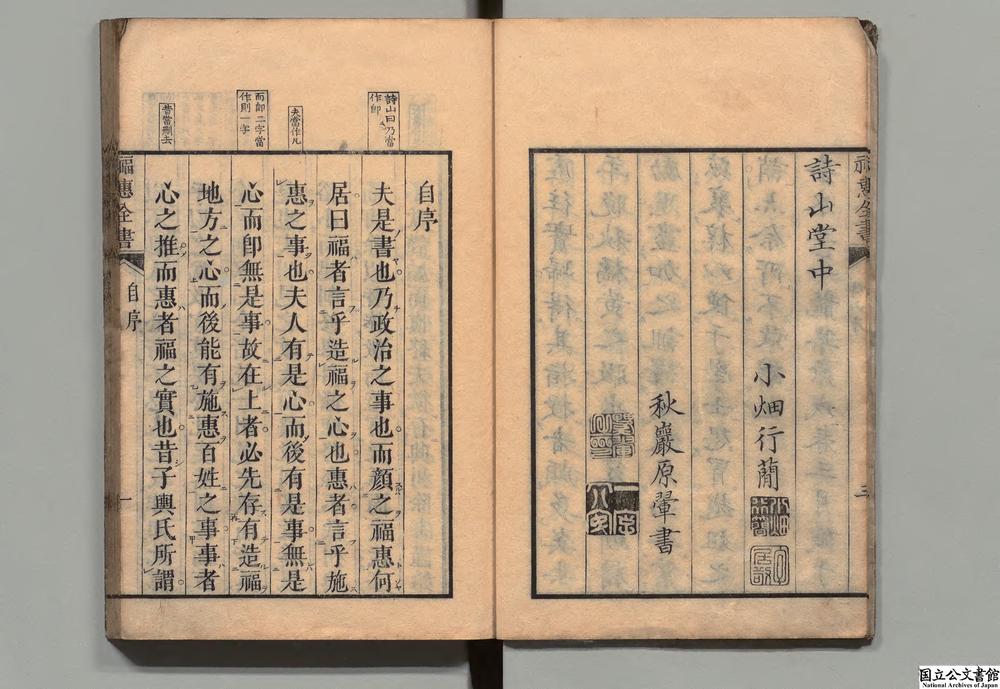 詩山堂中
小畑行蕳
秋巖原翬書
福惠全書
三
詩山曰乃當
作即
夫當作凡
而卽二字當
作則一字
昔當刪去
自序
夫是書也乃政治之事也而顏之福惠何
居曰福者言乎造福之心也惠者言乎施
惠之事也夫人有是心而後有是事無是
心而卽無是事故在上者必先存有造福
地方之心而後能有施惠百姓之事事者
心之推而惠者福之實也昔子輿氏所謂
福惠全書
自序
一
国立公文書館
National Archives of Japan